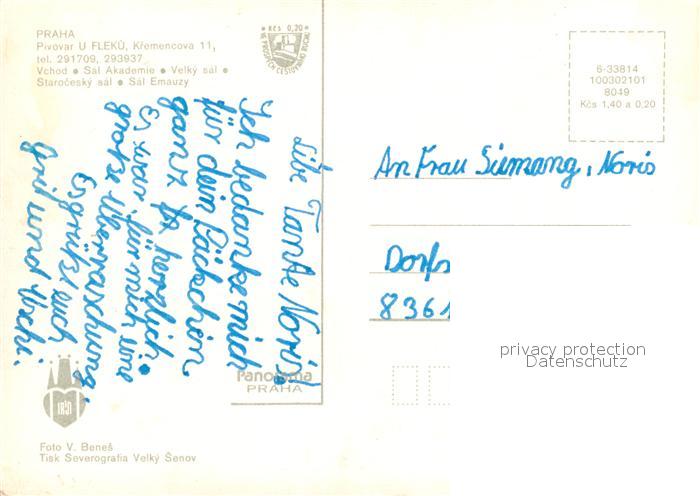 PRAHA
Pivovar U FLEKŮ, Křemencova 11,
tel. 291709, 293937
Vchod • Sál Akademie • Velký sál •
Staročeský sál • Sál Emauzy
Kčs 0,20
VE PROSPĚCH CESTOVNÍHO RUCHU
6-33814
100302101
8049
Kčs 1,40 a 0,20
Liebe Tante Noris!
Ich bedanke mich
für dein Päckchen
ganz herzlich.
Es war für mich eine
große Überraschung.
Es grüßt euch
Gril und Uschi.
An Frau Siemang, Noris
Dorfs
8361
privacy protection
Datenschutz
Panorama
PRAHA
Foto V. Beneš
Tisk Severografia Velký Šenov